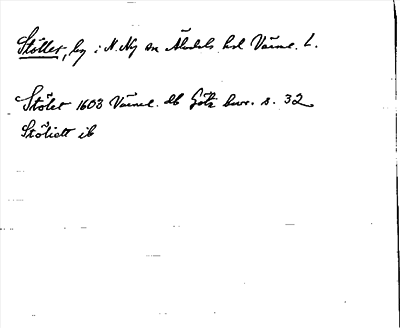 Stöllet, by i N. Ny sn Älvdals hd Värml. L.
Stölet 1603 Värml. db Göta bevr. s. 32
Stöliett ib